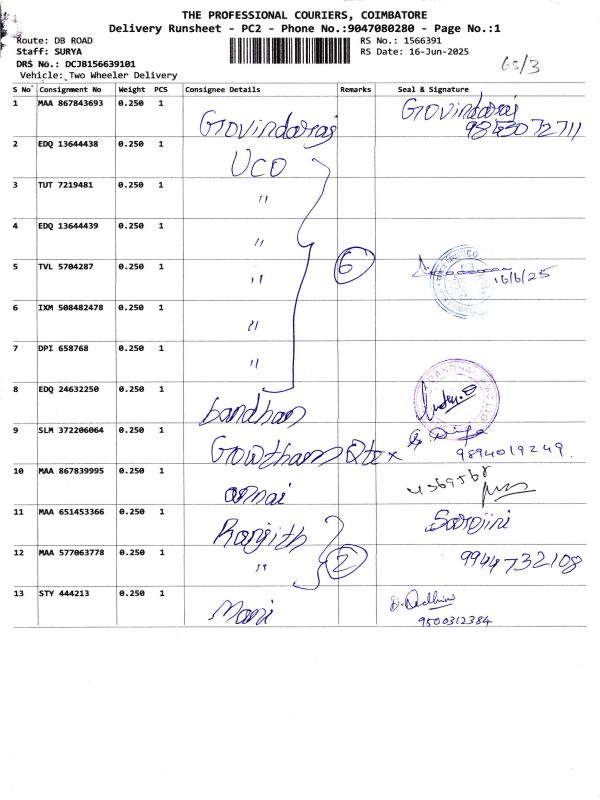 THE PROFESSIONAL COURIERS, COIMBATORE
Delivery Runsheet - PC2 - Phone No.:9047080280 - Page No.:1
Route: DB ROAD
RS No.: 1566391
Staff: SURYA
RS Date: 16-Jun-2025
DRS No.: DCJB156639101
65/3
Vehicle: Two Wheeler Delivery
S No Consignment No Weight PCS Consignee Details Remarks Seal & Signature
1 MAA 867843693 0.250 1 Govindaraj Govindaraj
9843072711
2 EDQ 13644438 0.250 1 UCO
3 TUT 7219481 0.250 1 "
4 EDQ 13644439 0.250 1 "
5 TVL 5704287 0.250 1 " 6 16/6/25
6 IXM 508482478 0.250 1 "
7 DPI 658768 0.250 1 "
8 EDQ 24632250 0.250 1 bandhan
9 SLM 372206064 0.250 1 Gowtham Qtex
9894019249.
10 MAA 867839995 0.250 1
11 MAA 651453366 0.250 1 Ranjith Sarojini
12 MAA 577063778 0.250 1 " 2 9944732108
13 STY 444213 0.250 1 Mani
9500312384